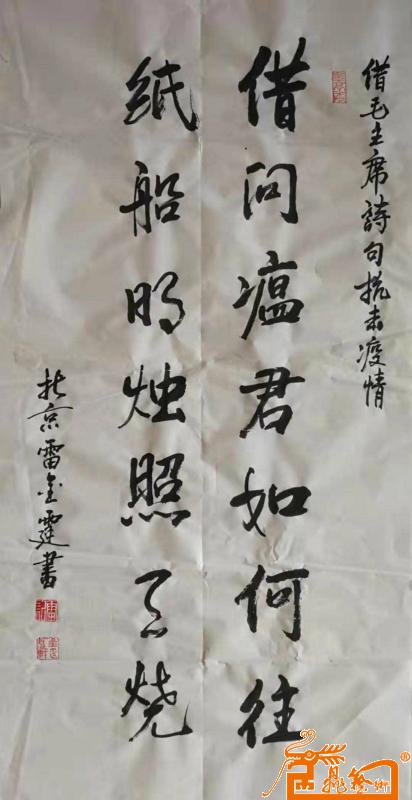 借毛主席詩句抗击疫情
借问瘟君如何往
纸船明烛照天烧
北京雷金霆書